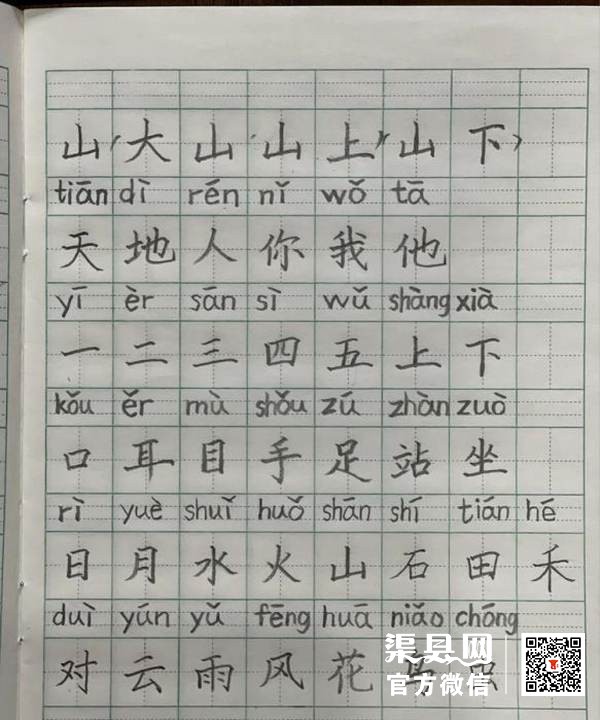 山(大山 山上)(山下)
tiān dì rén nǐ wǒ tā
天地人你我他
yī èr sān sì wǔ shàng xià
一二三四五上下
kǒu ěr mù shǒu zú zhàn zuò
口耳目手足站坐
rì yuè shuǐ huǒ shān shí tián hé
日月水火山石田禾
duì yún yǔ fēng huā niǎo chóng
对云雨风花鸟虫
渠县网
官方微信